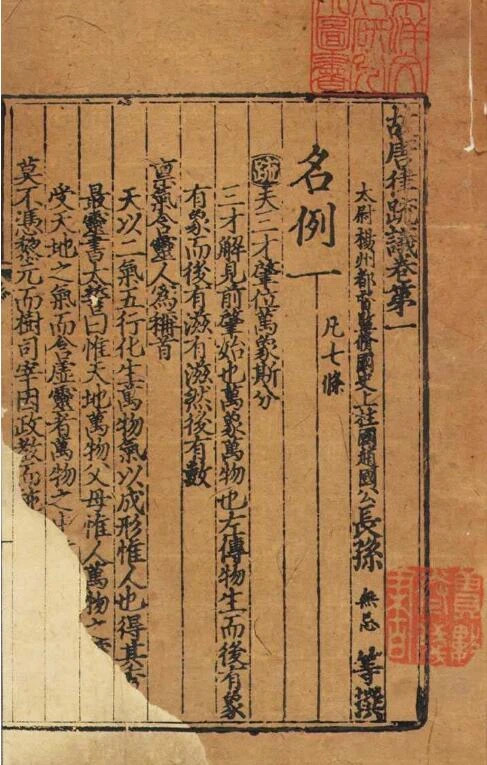 故唐律疏議卷第一
太尉揚州都督監脩國史上柱國趙國公長孫無忌等撰
名例一
凡七條
疏夫三才肇位萬象斯分
三才解見前肇始也萬象萬物也左傳物生而後有象
有象而後有滋有滋然後有數
稟氣含靈人爲稱首
天以二氣五行化生萬物氣以成形惟人也得其秀
最靈書太誓曰惟天地萬物父母惟人萬物之
受天地之氣而含虛靈者萬物之
莫不憑黎元而樹司宰因政教而施